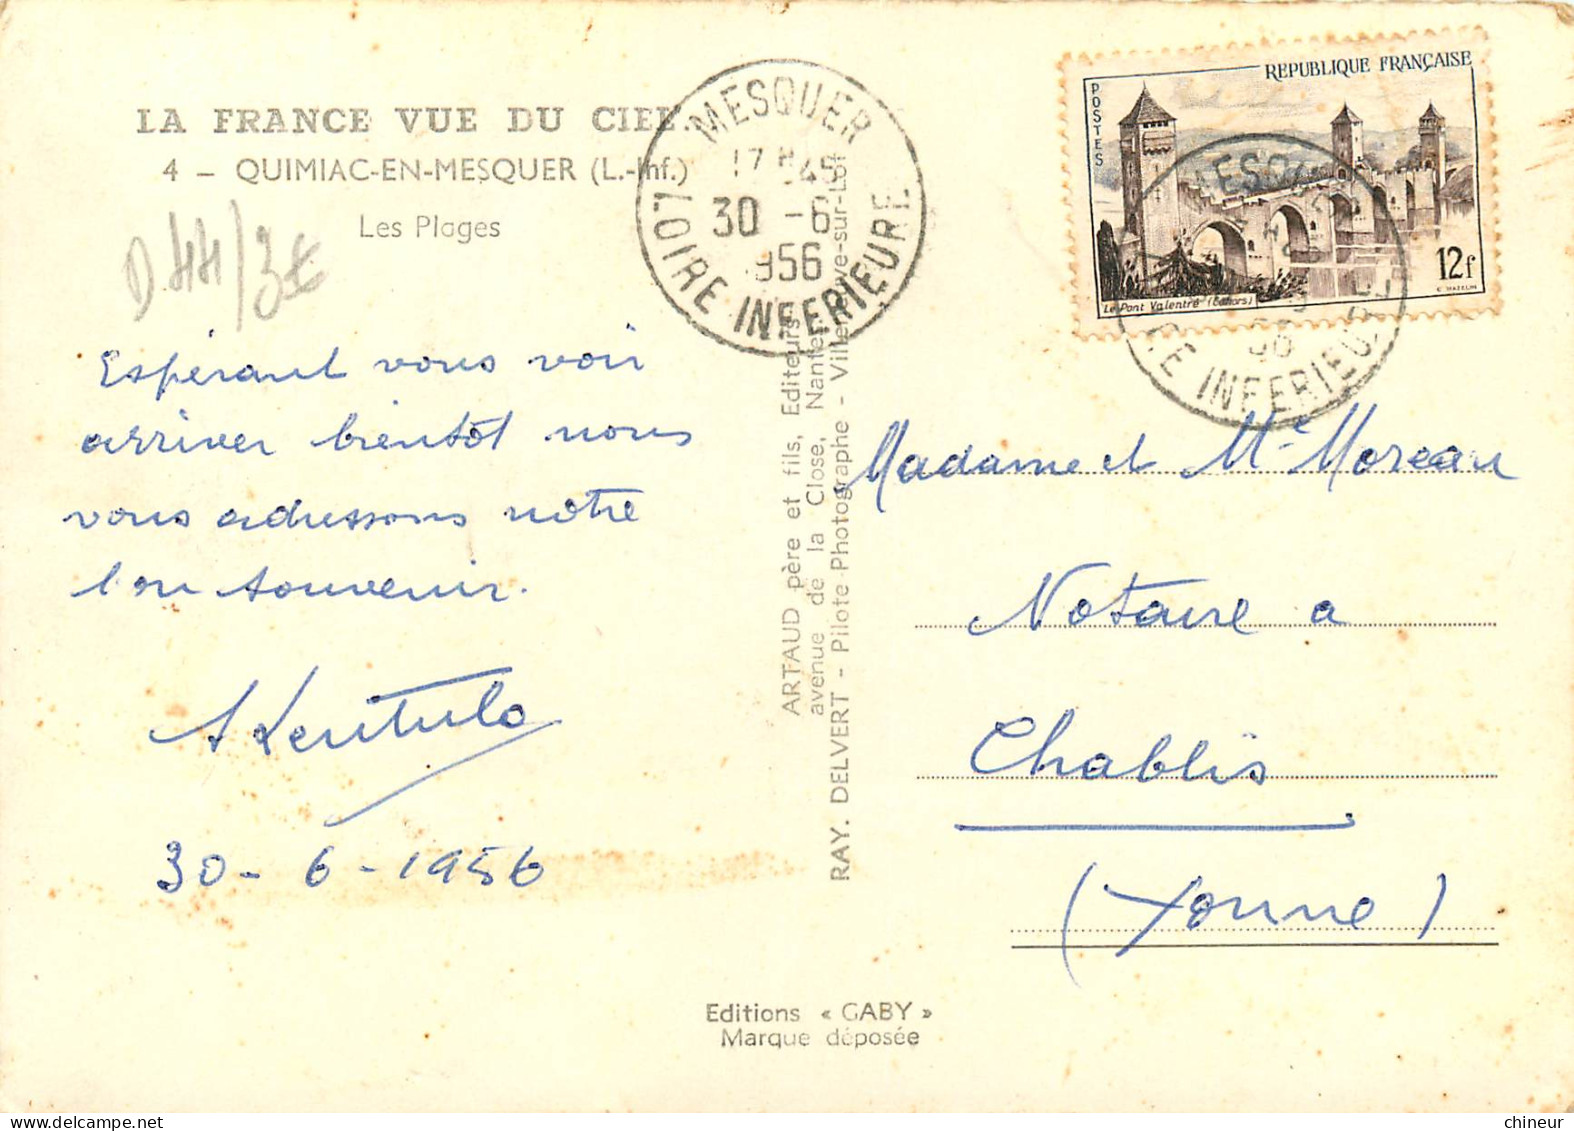 LA FRANCE VUE DU CIEL..
4 – QUIMIAC-EN-MESQUER (L.-Inf.)
Les Plages
D 44/3€
Espérant vous voir
arriver bientôt nous
vous adressons notre
bon souvenir.
30-6-1956
MESQUER
17H 45
30 -6
1956
LOIRE INFERIEURE
ARTAUD père et fils, Editeurs
avenue de la Close, Nantes
RAY. DELVERT - Pilote-Photographe - Villeneuve-sur-Lot
REPUBLIQUE FRANÇAISE
POSTES
12f
Le Pont Valentré (Cahors)
C. MAZELIN
INFERIEURE
Madame et Mr Moreau
Notaire a
Chablis
(Yonne)
Editions « GABY »
Marque déposée
chineur